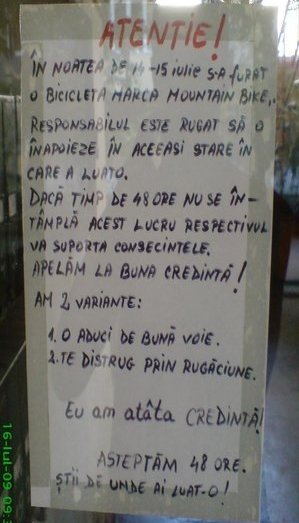 ATENȚIE!
ÎN NOATEA DE 14-15 iulie S-A FURAT
O BICICLETA MARCA MOUNTAIN BIKE,.
RESPONSABILUL ESTE RUGAT SĂ O
ÎNAPOIEZE ÎN ACEEASI STARE ÎN
CARE A LUATO.
DACĂ TIMP DE 48 ORE NU SE ÎN-
TÂMPLĂ ACEST LUCRU RESPECTIVUL
VA SUPORTA CONSECINTELE.
APELĂM LA BUNA CREDINTĂ!
AM 2 VARIANTE:
1. O ADUCI DE BUNĂ VOIE.
2. TE DISTRUG PRIN RUGĂCIUNE.
Eu am atâta CREDINTĂ!
ASTEPTĂM 48 ORE.
ȘTII DE UNDE AI LUAT-O!
16-Iul-09 09: